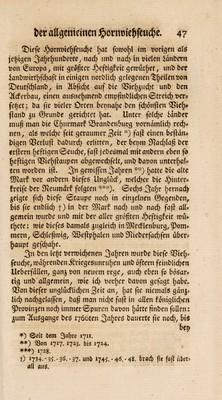 der allgemeinen Hornviehseuche. 47
Diese Hornviehseuche hat sowohl im vorigen als
jetzigen Jahrhunderte, nach und nach in vielen Ländern
von Europa, mit größter Heftigkeit gewütet, und der
Landwirthschaft in einigen nördlich gelegenen Theilen von
Deutschland, in Absicht auf die Viehzucht und den
Ackerbau, einen ausnehmend empfindlichen Streich ver-
setzet; da sie vieler Orten beynahe den schönsten Vieh-
stand zu Grunde gerichtet hat. Unter solche Länder
muß man die Churmark Brandenburg vornämlich rech-
nen, als welche seit geraumer Zeit *) fast einen bestän-
digen Verlust dadurch erlitten, der beym Nachlaß der
erstern heftigen Seuche, fast jedesmal mit andern eben so
heftigen Viehstaupen abgewechselt, und davon unterhal-
ten worden ist. In gewissen Jahren **) hatte die alte
Mark vor andern dieses Unglück, welcher die Hinter-
kreise der Neumärk folgten ***). Sechs Jahr hernach
zeigte sich diese Staupe noch in einzelnen Gegenden,
bis sie endlich †) in der Mark nach und nach fast all-
gemein wurde und mit der aller größten Heftigkeit wü-
thete; wie dieses damals zugleich in Mecklenburg, Pom-
mern, Schleßwig, Westphalen und Niedersachsen über-
haupt geschahe.
In den letzt verwichenen Jahren wurde diese Vieh-
seuche, währenden Kriegesunruhen und öftern feindlichen
Ueberfällen, ganz von neuem rege, auch eben so bösar-
tig und allgemein, wie ich vorher davon gesagt habe.
Von dieser unglücklichen Zeit an, hat sie niemals gänz-
lich nachgelassen, daß man nicht fast in allen Königlichen
Provinzen noch immer Spuren davon hätte finden sollen:
zum Ausgange des 1766ten Jahres dauerte sie noch, bis
bey
*) Seit dem Jahre 1711.
**) Von 1717. 1723. bis 1724.
***) 1728.
†) 1734. -35. -36. -37. und 1745. -46. -48. brach sie fast über-
all aus.